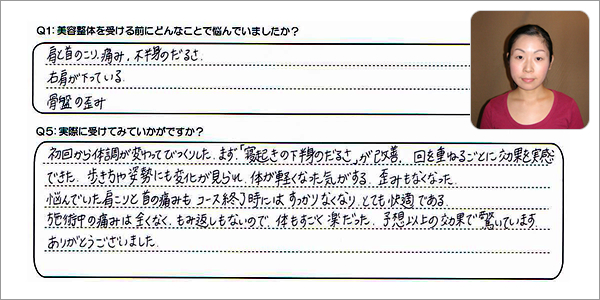 Q1：美容整体を受ける前にどんなことで悩んでいましたか？
肩と首のこり、痛み、下半身のだるさ
右肩が下っている
骨盤の歪み
Q5：実際に受けてみていかがですか？
初回から体調が変わってびっくりした。まず「寝起きの下半身のだるさ」が改善、回を重ねるごとに効果を実感
できた。歩き方や姿勢にも変化が見られ、体が軽くなった気がする。歪みもなくなった。
悩んでいた肩こりと首の痛みもコース終了時にはすっかりなくなり、とても快適である。
施術中の痛みは全くなく、もみ返しもないので、体もすごく楽だった。予想以上の効果で驚いています。
ありがとうございました。